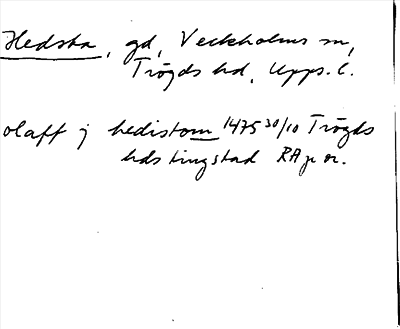 Hedsta, gd, Veckholms sn,
Trögds hd, Upps. l.
olaff j hedistom 1475 30/10 Trögds
hds tingstad RAp or.